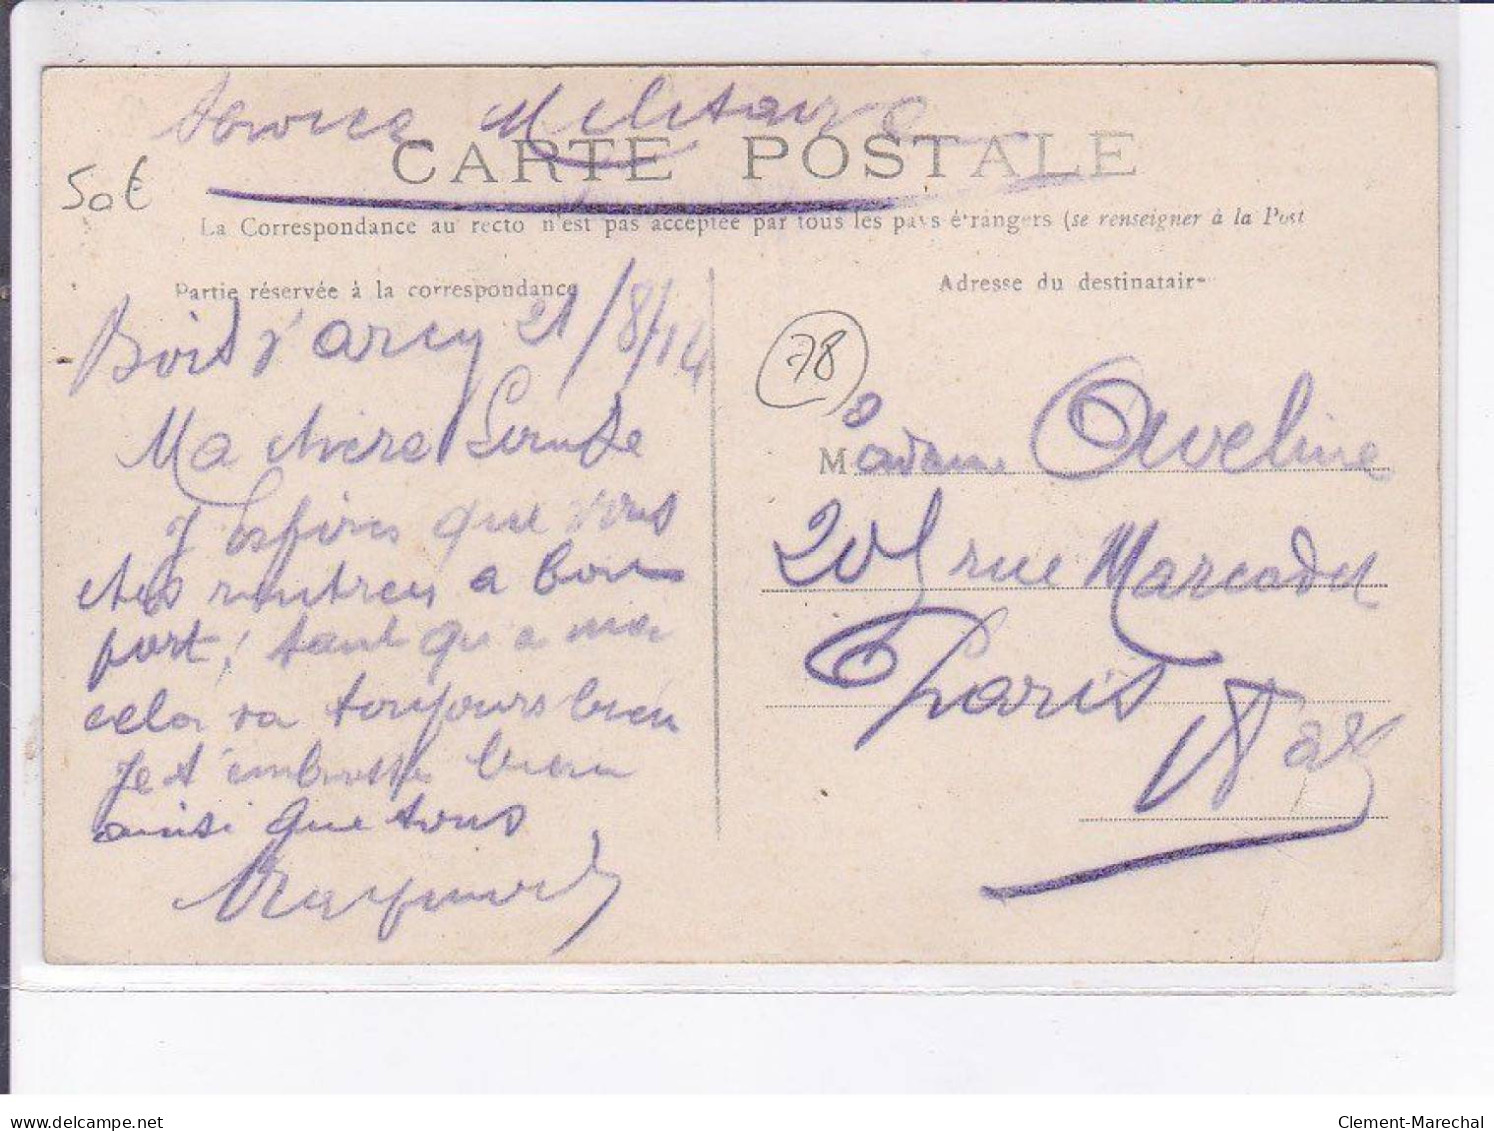 Service Militaire
CARTE POSTALE
50€
La Correspondance au recto n'est pas acceptée par tous les pays étrangers (se renseigner à la Post
Partie réservée à la correspondance
Adresse du destinataire
Bois d'arcy 21/8/14
Ma chère
J'espère que vous
êtes rentrés à bon
port, tant qu'a moi
cela va toujours bien
Je t'embrasse bien
ainsi que tous
Raymond
78
Madame Aveline
205 rue Marcadet
Paris
delcampe.net
Clement-Marechal